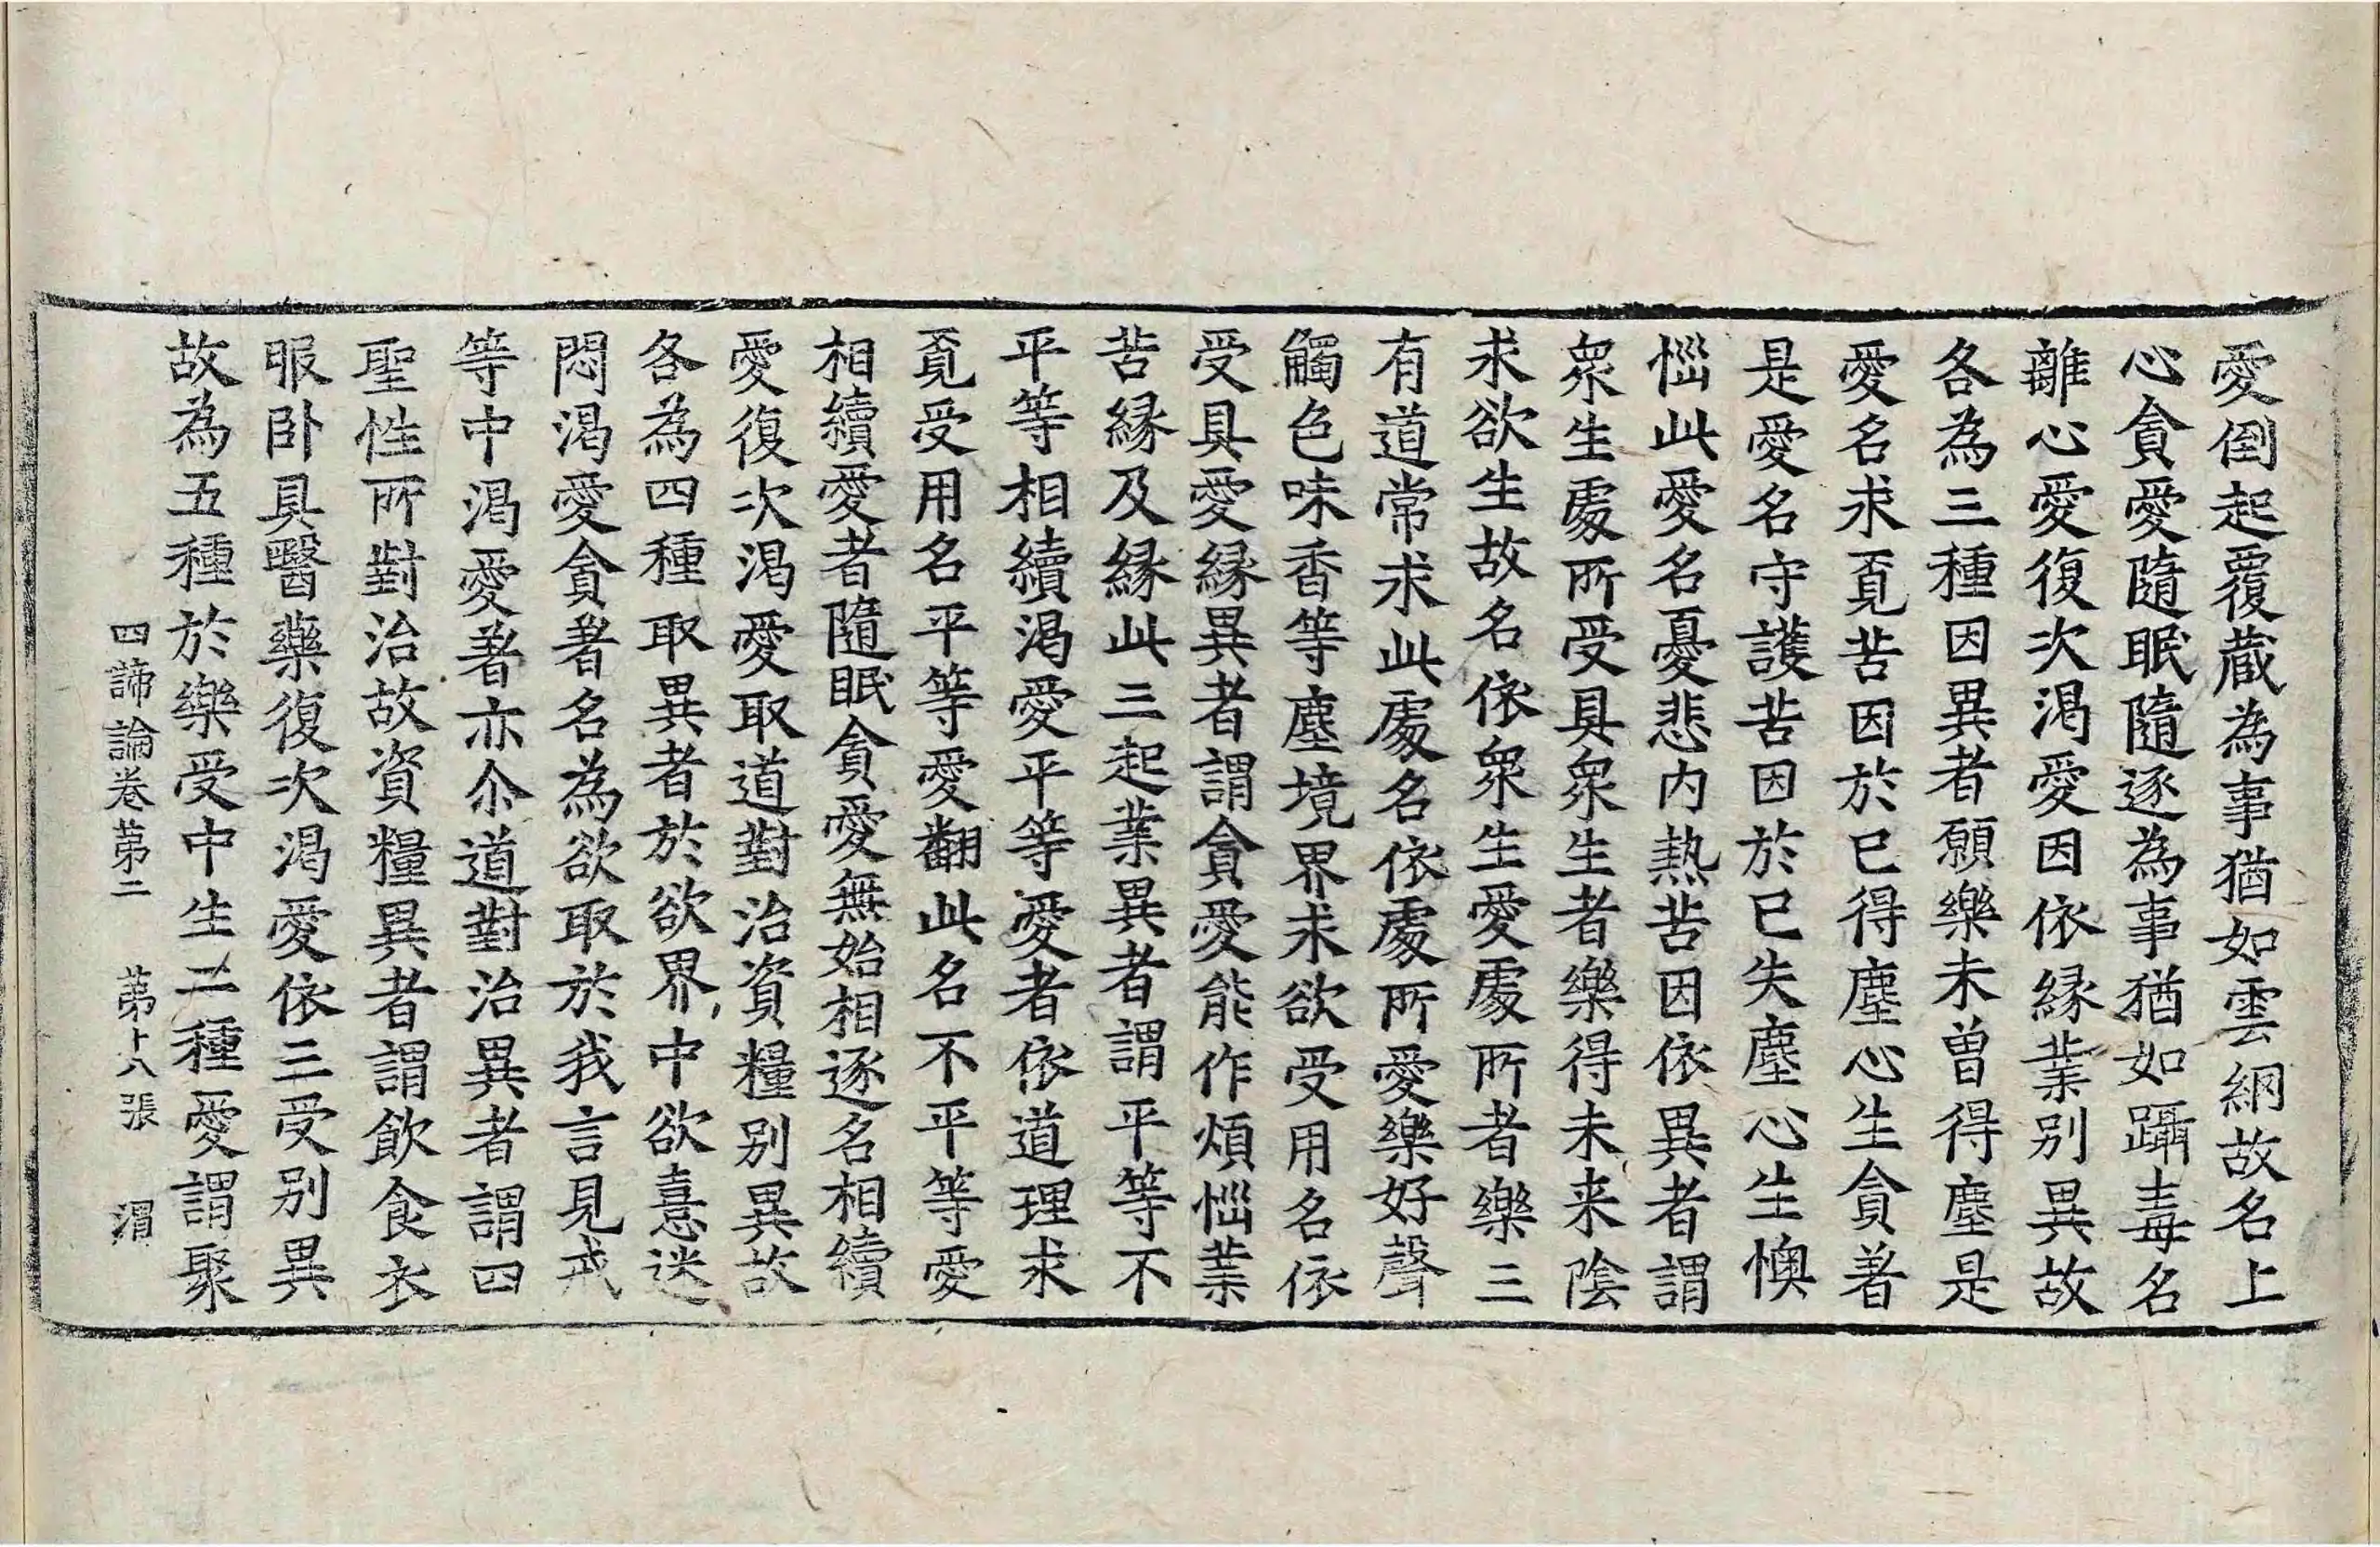 愛倒起覆蔵為事猶如雲網故名上
心貪愛隨眠隨逐為事猶如躡毒名
離心愛復次渴愛因依縁業別異故
各為三種因異者願樂未曽得塵是
愛名求覓苦因於已得塵心生貪著
是愛名守護苦因於已失塵心生懊
惱此愛名憂悲內熱苦因依異者謂
衆生處所受具衆生者樂得未来陰
求欲生故名依衆生愛處所者樂三
有道常求此處名依處所愛樂好聲
觸色味香等塵境界求欲受用名依
受具愛縁異者謂貪愛能作煩惱業
苦縁及縁此三起業異者謂平等不
平等相續渴愛平等愛者依道理求
覓受用名平等愛翻此名不平等愛
相續愛者隨眠貪愛無始相逐名相續
愛復次渴愛取道對治資糧別異故
各為四種取異者於欲界中欲憙迷
悶渴愛貪著名為欲取於我言見戒
等中渴愛著亦尒道對治異者謂四
聖性所對治故資糧異者謂飲食衣
服卧具醫藥復次渴愛依三受別異
故為五種於樂受中生二種愛謂聚
四諦論卷第二　第十八張　渭